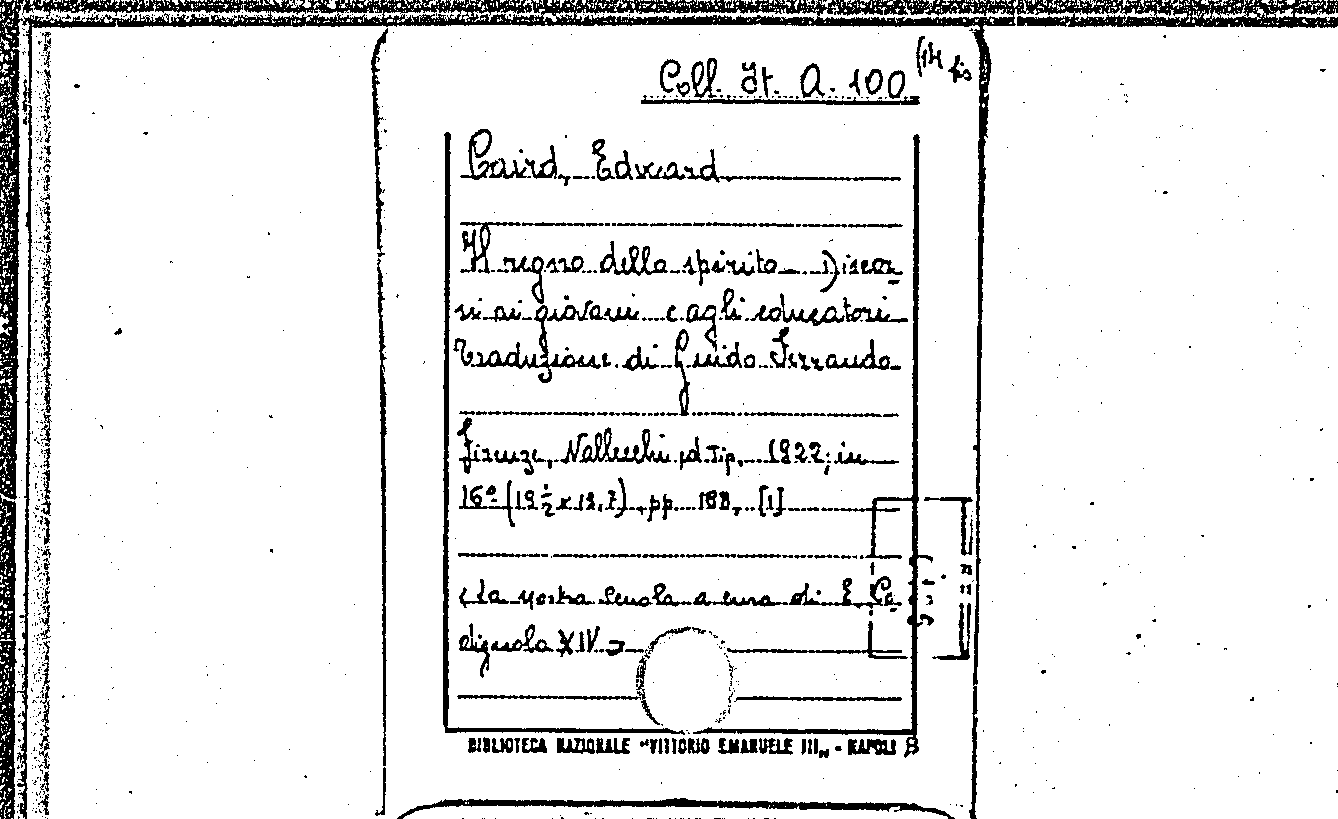 Coll. It. A. 100 (14 bis
Caird, Edward
Il regno dello spirito. Discor-
si ai giovani e agli educatori
Traduzione di Guido Ferrando
Firenze, Vallecchi, ed. Tip., 1922; in
16º (19 ½ x 12,7), pp. 188, [1]
(La nostra Scuola a cura di E. Co-
dignola XIV)
BIBLIOTECA NAZIONALE "VITTORIO EMANUELE III„ - NAPOLI B